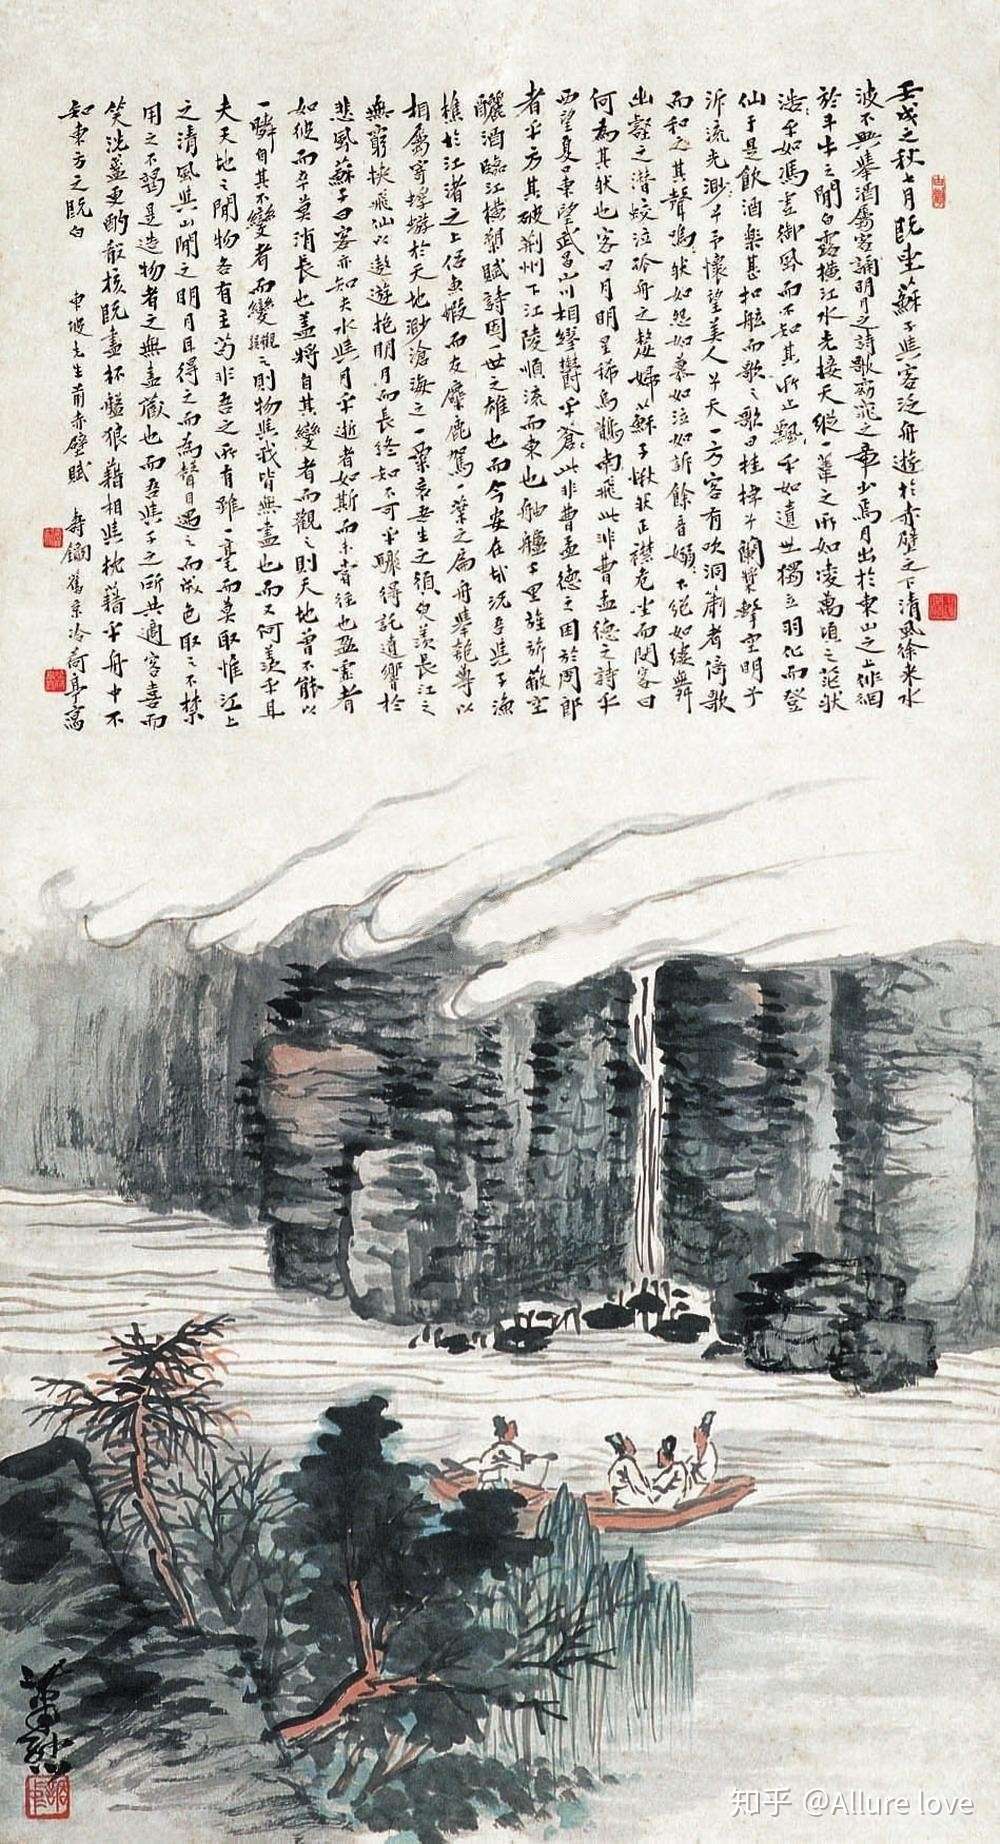 壬戌之秋七月既望蘇子與客泛舟遊於赤壁之下清風徐來水
波不興舉酒屬客誦明月之詩歌窈窕之章少焉月出於東山之上徘徊
於斗牛之間白露橫江水光接天縱一葦之所如凌萬頃之茫然
浩〻乎如馮虛御風而不知其所止飄〻乎如遺世獨立羽化而登
仙于是飲酒樂甚扣舷而歌之歌曰桂棹兮蘭槳擊空明兮
泝流光渺〻兮予懷望美人兮天一方客有吹洞簫者倚歌
而和之其聲嗚〻然如怨如慕如泣如訴餘音嫋〻不絕如縷舞
幽壑之潛蛟泣孤舟之嫠婦蘇子愀然正襟危坐而問客曰
何為其然也客曰月明星稀烏鵲南飛此非曹孟德之詩乎
西望夏口東望武昌山川相繆鬱乎蒼〻此非曹孟德之困於周郎
者乎方其破荊州下江陵順流而東也舳艫千里旌旂蔽空
釃酒臨江橫槊賦詩固一世之雄也而今安在哉況吾與子漁
樵於江渚之上侶魚蝦而友麋鹿駕一葉之扁舟舉匏尊以
相屬寄蜉蝣於天地渺滄海之一粟哀吾生之須臾羨長江之
無窮挾飛仙以遨遊抱明月而長終知不可乎驟得託遺響於
悲風蘇子曰客亦知夫水與月乎逝者如斯而未嘗往也盈虛者
如彼而卒莫消長也蓋將自其變者而觀之則天地曾不能以
一瞬自其不變者而觀之則物與我皆無盡也而又何羨乎且
夫天地之間物各有主苟非吾之所有雖一毫而莫取惟江上
之清風與山間之明月耳得之而為聲目遇之而成色取之不禁
用之不竭是造物者之無盡藏也而吾與子之所共適客喜而
笑洗盞更酌殽核既盡杯盤狼藉相與枕藉乎舟中不
知東方之既白 東坡先生前赤壁賦 壽 舊京冷荷亭寫
知乎 @Allure love